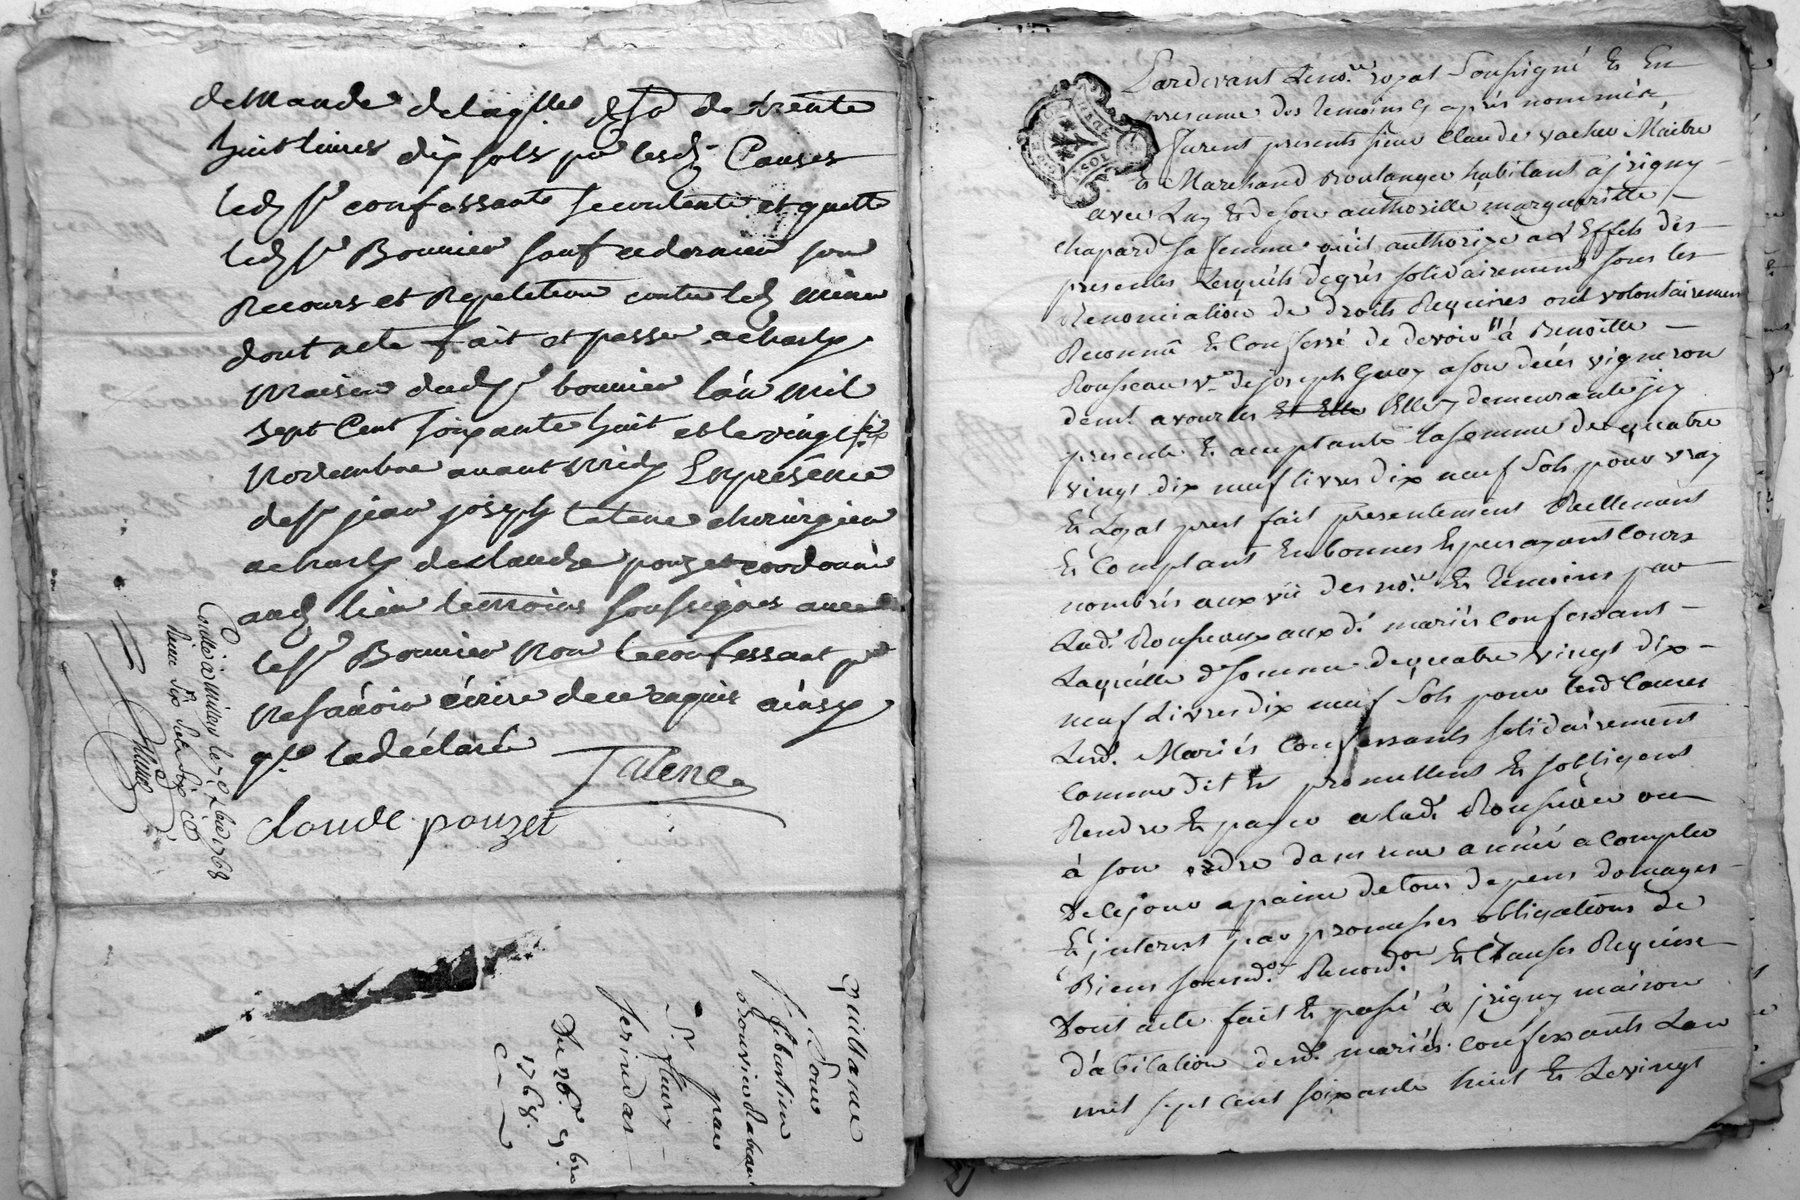 demande delaqlle de trente
huit livres dix sols pr lesd Causes
led Sr confessant se contente et quitte
led Sr Bouvier sauf a dernier son
Recours et Repetition contre led
dont acte fait et passé a charly
maison dud Sr bouvier l'an mil
sept Cent soixante huit et le vingt six
Novembre avant midy En présence
de Sr jean joseph talene chirurgien
a charly de claude pouzet cordonnier
aud lieu temoins soussignés avec
le Sr Bouvier non le confessant pr
ne savoir écrire de ce enquis ainsy
qle la déclaré
Talene
claude pouzet
Contlé a Millery le 7 Xbre 1768
Reçu
Quittance
Pour
Sr Sebastien
Bouvier
par
Sr fleury
Du 26e 9bre
1768.
Pardevant Le nore royal Soussigné Et En
presance des temoins cy après nommés,
furent presents sieur Claude vacher Maitre
Et Marchand Boulanger habitant a jrigny
avec Luy Et de son authorité margueritte
chapard sa femme qu'il authorize a L'Effets des
presentes Lesquels de grés solidairement sous les
Renonciation de droits Requises ont volontairement
Reconnu & Confessé de devoir à Benoitte
Rousseau ve de joseph Guoy a son décés vigneron
demt a vourles Et Elle Elle y demeurante jcy
presente Et acceptante la somme de quatre
vingt dix neuf livres dix neuf Sols pour vray
Et Loyal prest fait presentement Reellement
Et Comptant En bonnes Especes ayant Cours
nombrés aux vü des nore Et temoins par
Lad. Rousseau aux d. mariés confessant
Laquelle d somme de quatre vingt dix
neuf Livres dix neuf Sols pour lesd Causes
Lesd. Mariés Confessants solidairement
comme dit Et promettent Et s'obligent
Rendre Et payer a lad. Rousseau ou
à son ordre dans une année a compter
de ce jour a paine de tous depens domages
Et jnterest par promesses obligations de
Biens Renon.on Et Clauses Requise
Dont acte fait Et passé à jrigny maison
d'abitation desd. mariés confessants Lan
mil sept cent soixante huit Et Le vingt